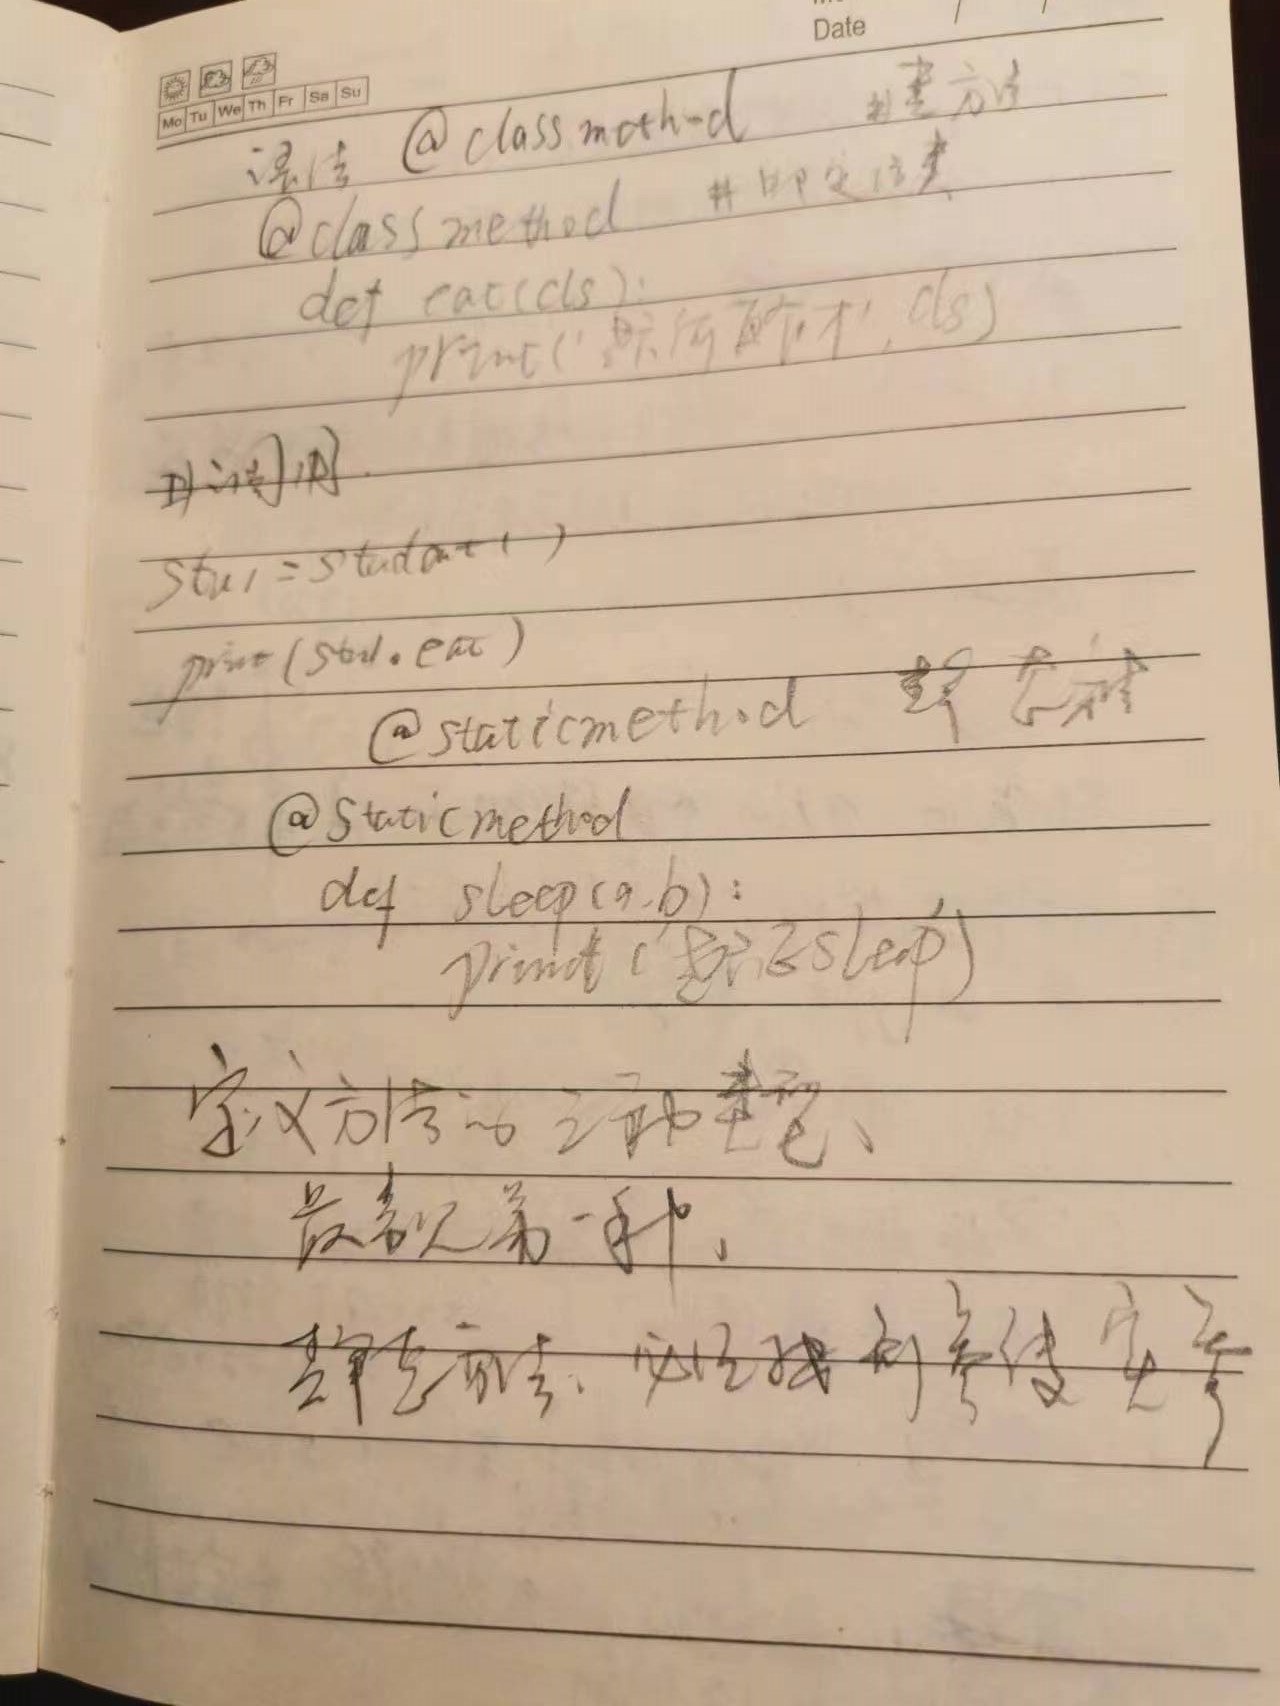 Date
Mo Tu We Th Fr Sa Su
语法 @classmethod #类方法
@classmethod #即定位类
def eat(cls):
print(' ', cls)
调用.
stu1 = student()
print(stu1.eat)
@staticmethod 静态方法
@staticmethod
def sleep(a,b):
print('类 sleep')
定义方法的三种类型、
最常见第一种,
静态方法、必须找到参传实参